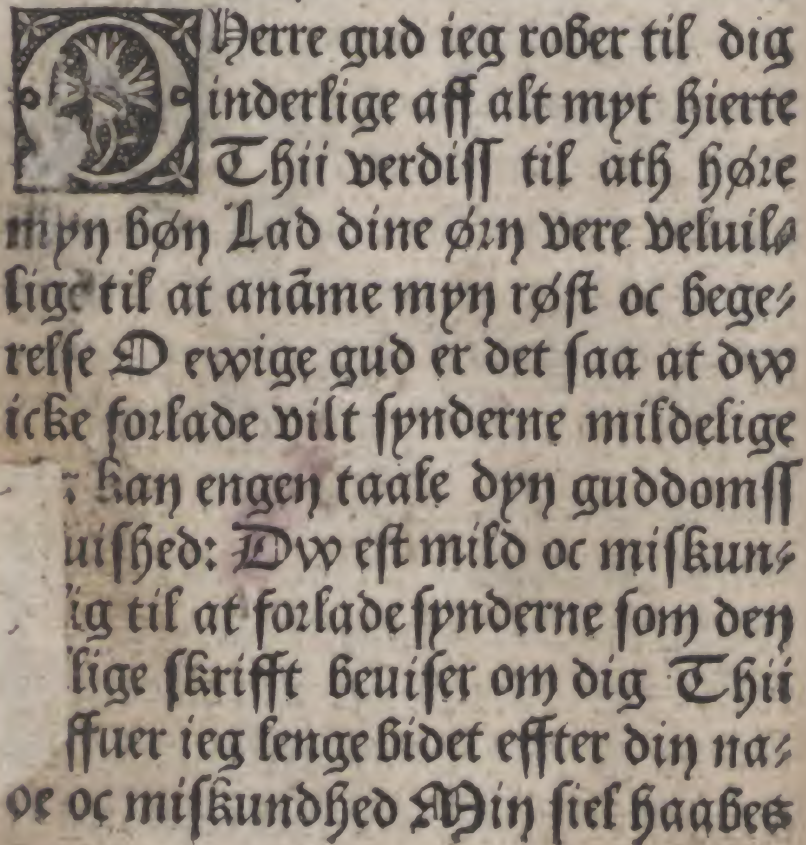 O Herre gud ieg rober til dig
inderlige aff alt myt hierte
Thii verdiſſ til ath høre
myn bøn Lad dine ørn vere veluil⸗
lige til at anãme myn røſt oc bege⸗
relſe O ewige gud er det ſaa at dw
icke forlade vilt ſynderne mildelige
kan engen taale dyn guddomſſ
uiſhed: Dw eſt mild oc miſkun⸗
ig til at forlade ſynderne ſom den
lige ſkrifft beuiſer om dig Thii
ffuer ieg lenge bidet effter din na⸗
de oc miſkundhed Min ſiel haabes